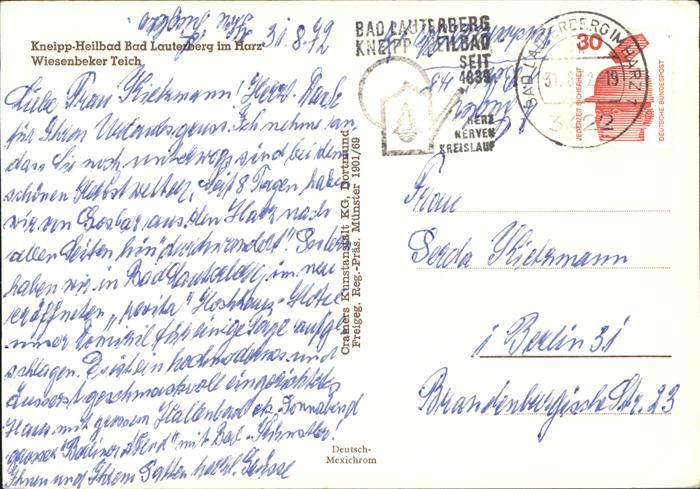 Kneipp-Heilbad Bad Lauterberg im Harz
Wiesenbeker Teich
31.8.72
Liebe Frau Kietzmann! Herzl. Dank
für Ihren Urlaubsgruss. Ich nehme an,
dass Sie noch unterwegs sind bei dem
schönen Herbstwetter. Seit 8 Tagen haben
wir von Goslar aus den Harz nach
allen Seiten hin "durchwandert". Seit
haben wir in Bad Lauterberg im neu
eröffneten "revita" Hotel
unser Domizil für einige Tage aufge
schlagen. Es ist ein hochmodernes und
äusserst geschmackvoll eingerichtetes
Haus mit grossem Hallenbad etc. Sonnabend
grosser "Berliner Abend" mit Berl. Künstler!
Ihnen und Ihrem Gatten herzl. Grüsse
Cramers Kunstanstalt KG, Dortmund
Freigeg. Reg.-Präs. Münster 1901/69
Deutsch-
Mexichrom
BAD LAUTERBERG
KNEIPP HEILBAD
SEIT
1839
HERZ
NERVEN
KREISLAUF
BAD LAUTERBERG IM HARZ 1
31.8.72 19
3422
30
JEDERZEIT SICHERHEIT
DEUTSCHE BUNDESPOST
Frau
Gerda Kietzmann
1 Berlin 31
Brandenburgische Str. 23